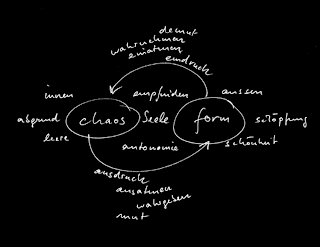 demut
wahrnehmen
einatmen
eindruck
innen
empfinden
aussen
abgrund
chaos
Seele
form
schöpfung
leere
autonomie
schönheit
ausdruck
ausatmen
wahrgeben
mut